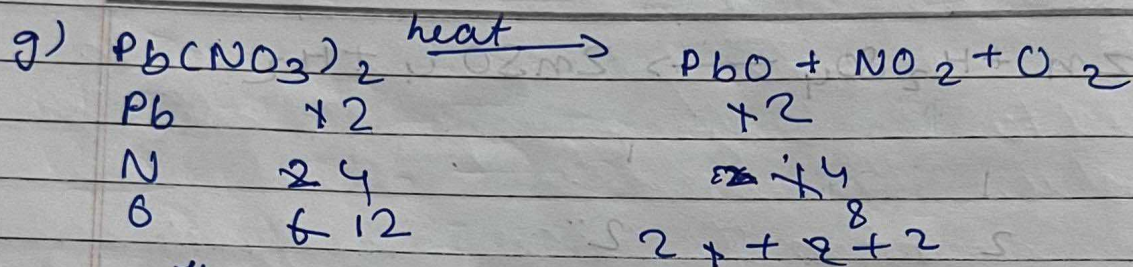 g) Pb(NO3)2 heat → PbO + NO2 + O2
Pb 1 2 1 2
N 2 4 1 4
O 6 12 2 1 + 2 8 + 2